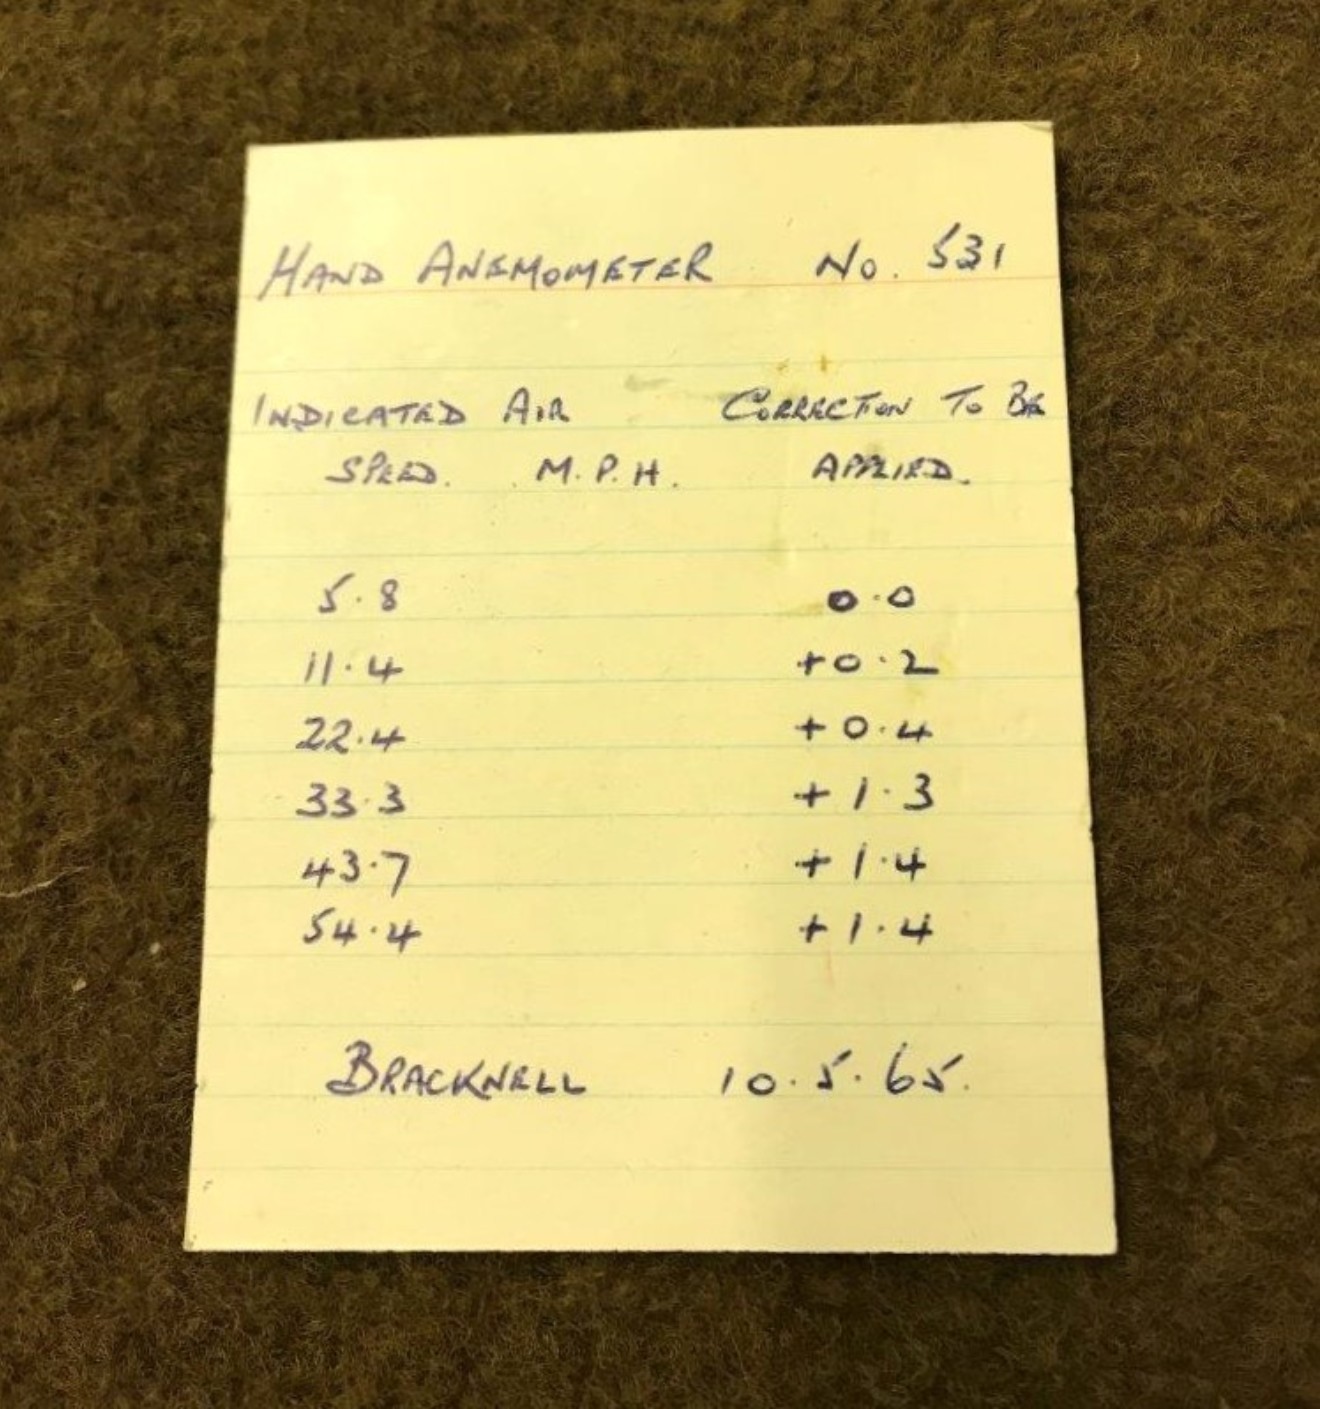 HAND ANEMOMETER No. 531
INDICATED AIR CORRECTION TO BE
SPEED. M.P.H. APPLIED.
5.8 0.0
11.4 +0.2
22.4 +0.4
33.3 +1.3
43.7 +1.4
54.4 +1.4
BRACKNELL 10.5.65.